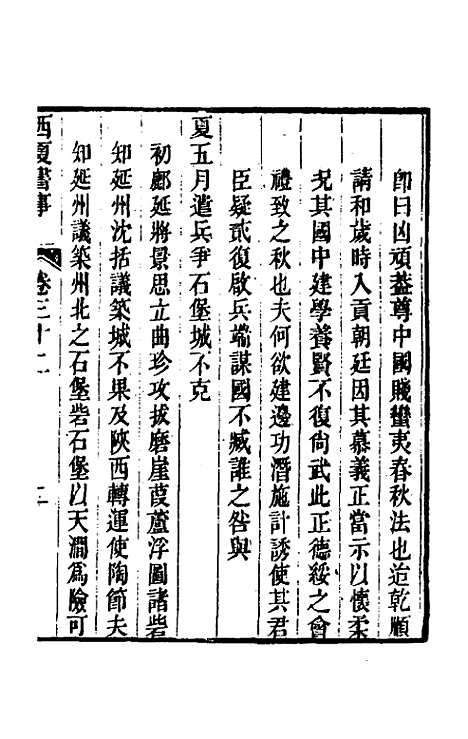 卽曰凶頑蓋尊中國賤蠻夷春秋法也迨乾順
請和歲時入貢朝廷因其慕義正當示以懷柔
况其國中建學養賢不復尙武此正德綏之會
禮致之秋也夫何欲建邊功潛施計誘使其君
臣疑貳復啟兵端謀國不臧誰之咎與
夏五月遣兵爭石堡城不克
初鄜延將景思立曲珍攻拔磨崖葭蘆浮圖諸砦
知延州沈括議築城不果及陝西轉運使陶節夫
知延州議築州北之石堡砦石堡以天澗爲險可
西夏書事 卷三十二 二